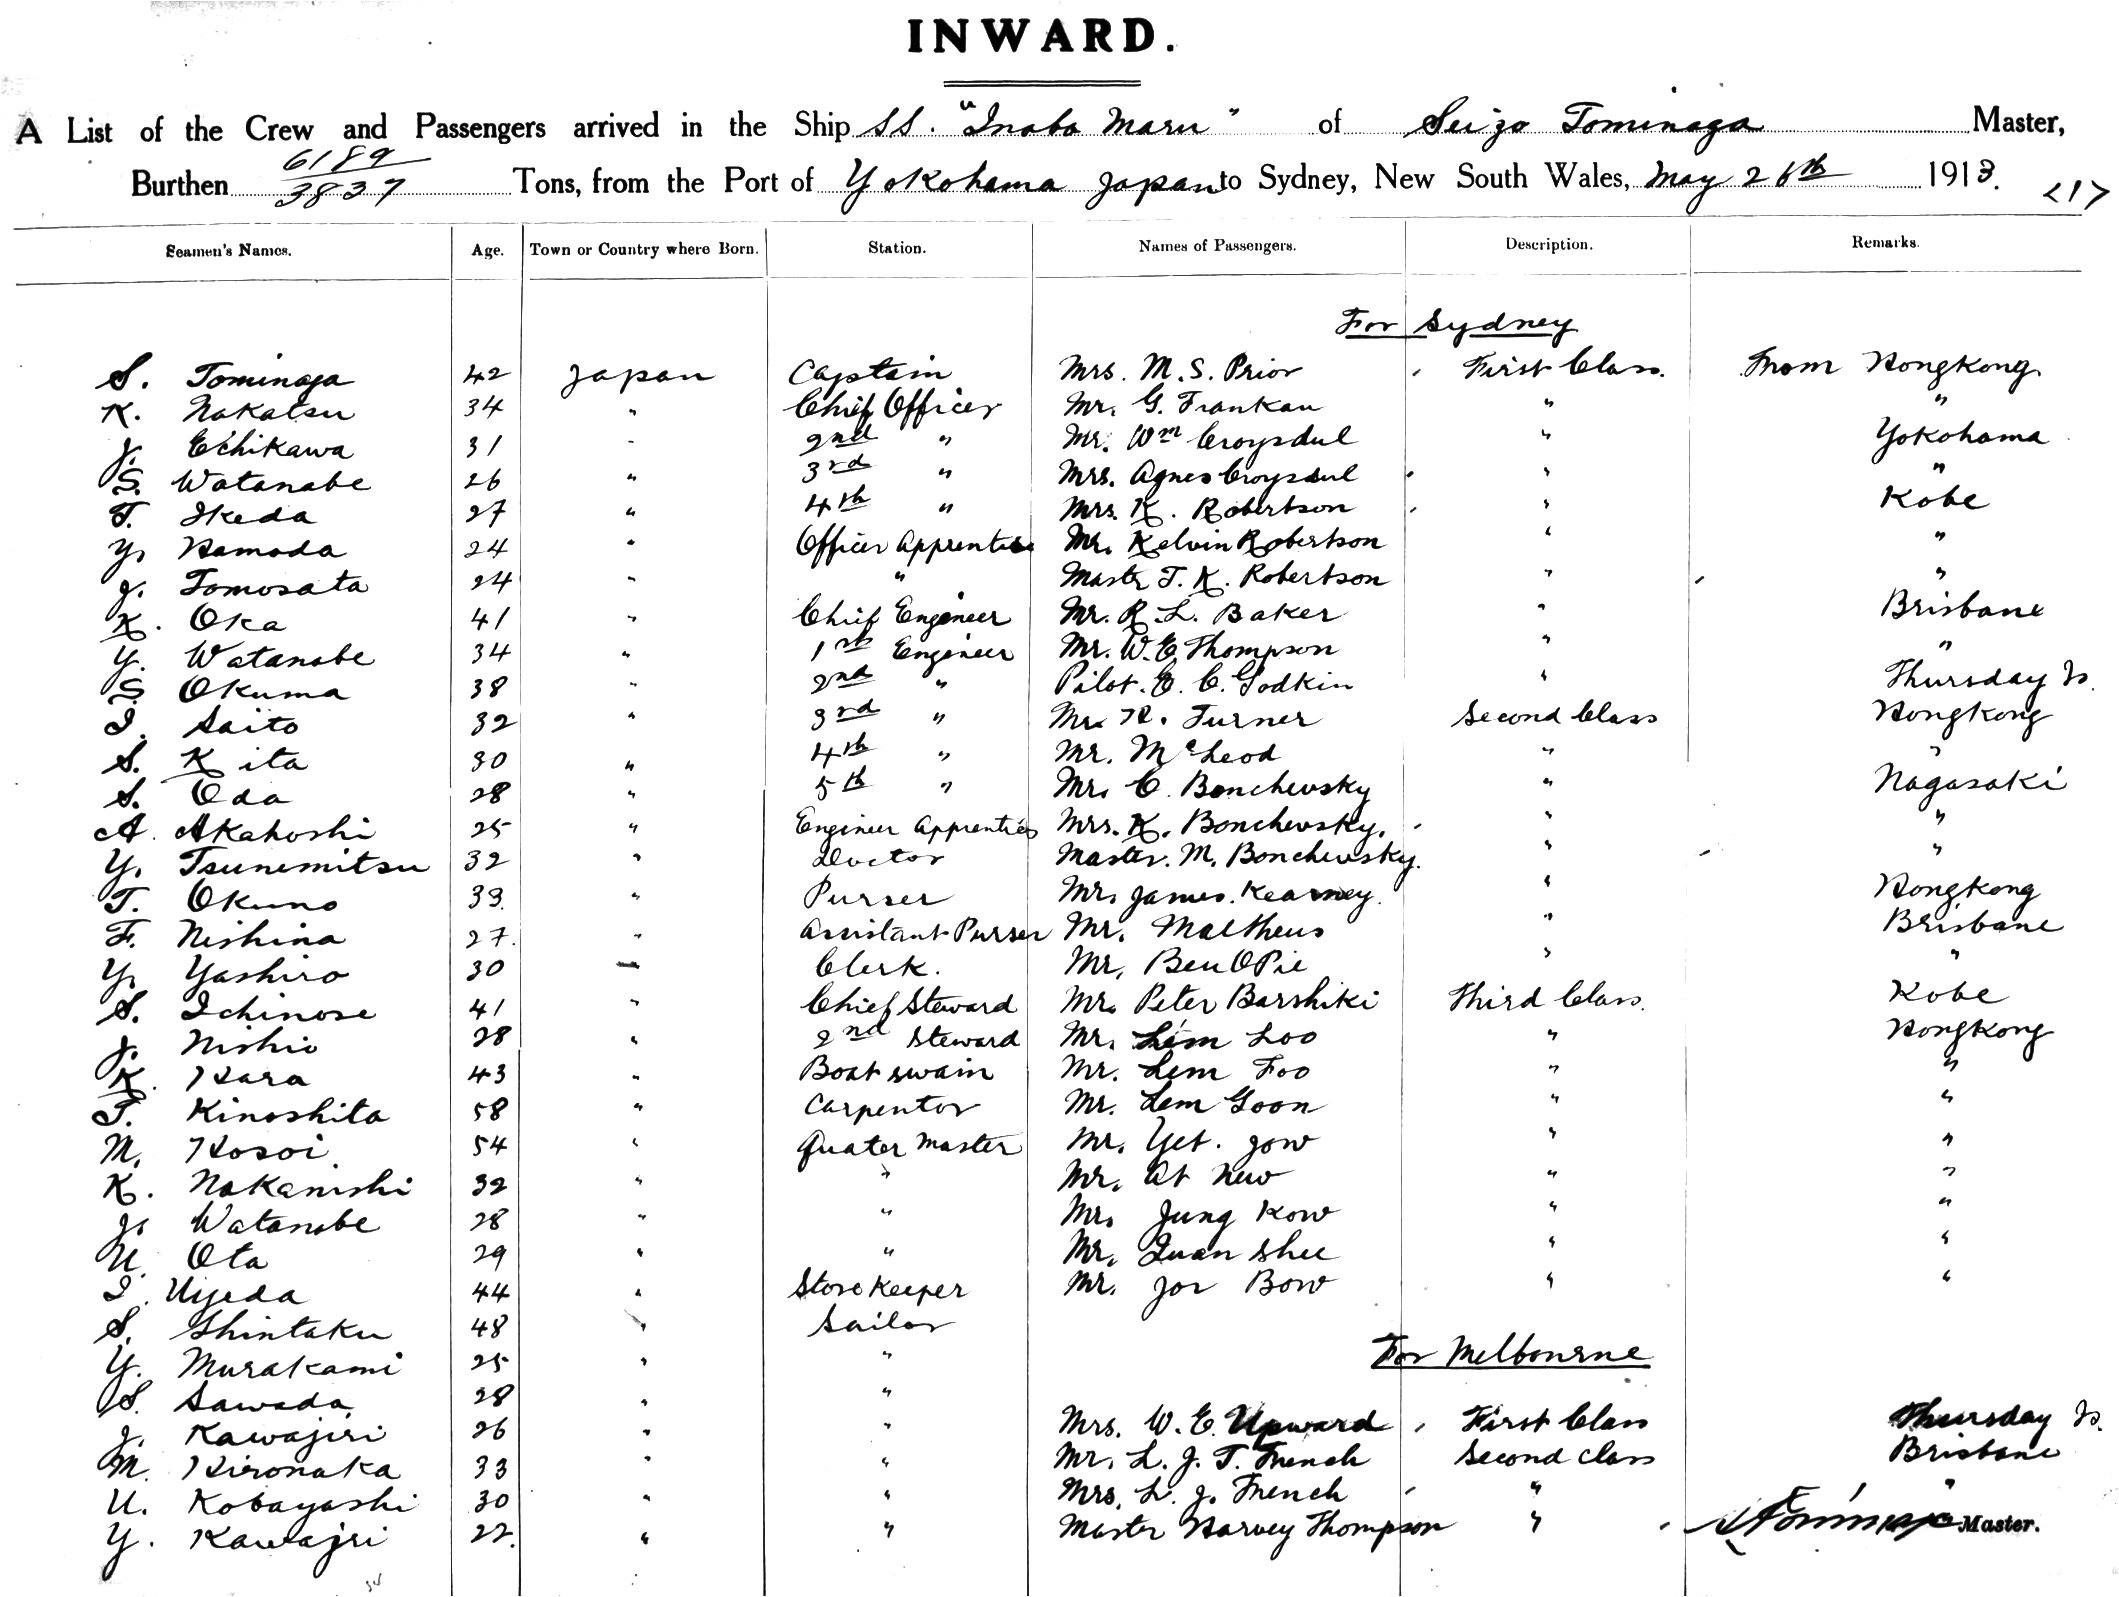 INWARD.
A List of the Crew and Passengers arrived in the Ship SS. "Inaba Maru" of Seizo Tominaga Master,
Burthen 6189 / 3837 Tons, from the Port of Yokohama Japan to Sydney, New South Wales, May 26th 1913. <1>
Seamen's Names. Age. Town or Country where Born. Station. Names of Passengers. Description. Remarks.
For Sydney
S. Tominaga 42 Japan Captain Mrs. M. S. Prior First Class. From Hongkong.
K. Nakatsu 34 " Chief Officer Mr. G. Frankau " "
J. Echikawa 31 " 2nd " Mr. Wm Croysdul " Yokohama
S. Watanabe 26 " 3rd " Mrs. Agnes Croysdul " "
T. Ikeda 27 " 4th " Mrs. K. Robertson " Kobe
Y. Hamada 24 " Officer Apprentice Mr. Kelvin Robertson " "
J. Tomosata 24 " " Master T. K. Robertson " "
K. Oka 41 " Chief Engineer Mr. R. L. Baker " Brisbane
Y. Watanabe 34 " 1st Engineer Mr. W. E. Thompson " "
S. Okuma 38 " 2nd " Pilot. E. C. Godkin " Thursday Is.
I. Saito 32 " 3rd " Mr. H. Turner Second Class Hongkong
S. Kita 30 " 4th " Mr. McLeod " "
S. Oda 28 " 5th " Mr. C. Bonchevsky " Nagasaki
A. Akahoshi 25 " Engineer Apprentice Mrs. K. Bonchevsky. " "
Y. Tsunemitsu 32 " Doctor Master. M. Bonchevsky. " "
T. Okuno 33. " Purser Mr. James. Kearney. " Hongkong
F. Nishina 27. " Assistant Purser Mr. Maltheus " Brisbane
Y. Yashiro 30 " Clerk. Mr. Ben OPie " "
S. Ichinose 41 " Chief Steward Mr. Peter Barshiki Third Class. Kobe
J. Nishio 28 " 2nd Steward Mr. Lem Loo " Hongkong
K. Hara 43 " Boatswain Mr. Lem Foo " "
T. Kinoshita 58 " Carpentor Mr. Lem Goon " "
M. Hosoi 54 " Quater Master Mr. Yet. Jow " "
K. Nakanishi 32 " " Mr. At New " "
J. Watanabe 28 " " Mr. Jung Kow " "
U. Ota 29 " " Mr. Quan Shee " "
I. Uyeda 44 " Store Keeper Mr. Jor Bow " "
S. Shintaku 48 " Sailor
Y. Murakami 25 " " For Melbourne
S. Sawada 28 " "
J. Kawajiri 26 " " Mrs. W. E. Upward First Class Thursday Is.
M. Hironaka 33 " " Mr. L. J. T. French Second Class Brisbane
U. Kobayashi 30 " " Mrs. L. J. French " "
Y. Kawajri 22. " " Master Harvey Thompson " S Tominaga Master.